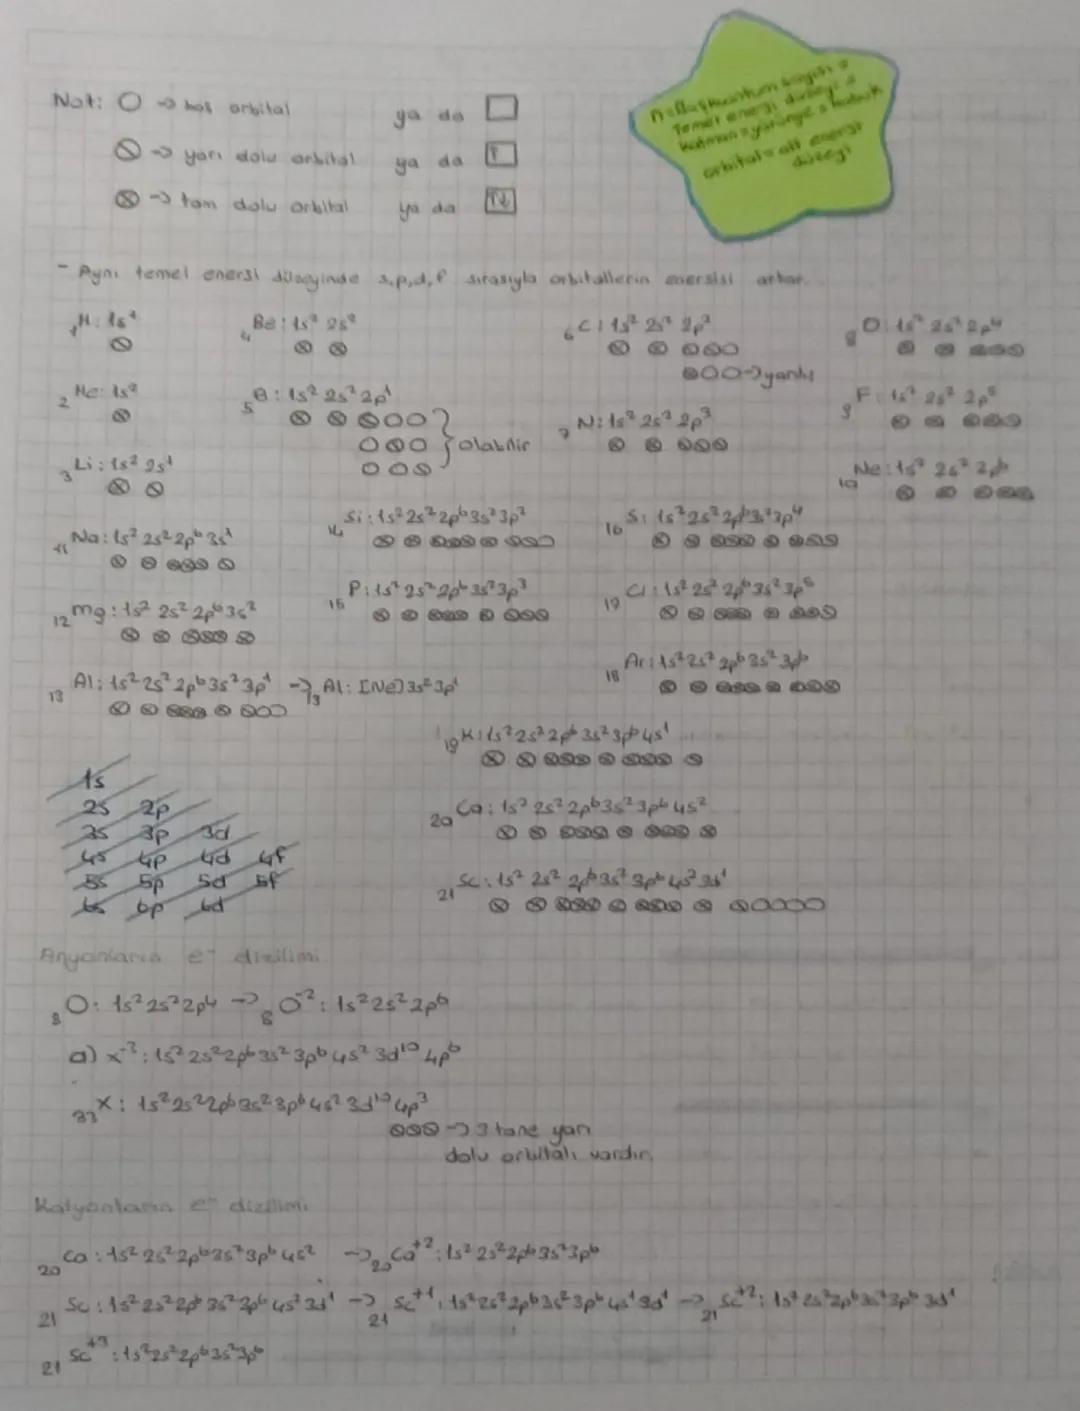 Not: ○ → boş orbital ya da □
⦸ → yarı dolu orbital ya da ↑
⊗ → tam dolu orbital ya da ↑↓
n = Baş kuantum sayısı =
Temel enerji düzeyi =
Katman = yörünge = kabuk
orbital = alt enerji
düzeyi
- Aynı temel enerji düzeyinde s,p,d,f sırasıyla orbitallerin enerjisi artar.
₁H: 1s¹
₂He: 1s²
₃Li: 1s² 2s¹
₄Be: 1s² 2s²
₅B: 1s² 2s² 2p¹
olabilir
₆C: 1s² 2s² 2p²
→ yanlış
₇N: 1s² 2s² 2p³
₈O: 1s² 2s² 2p⁴
₉F: 1s² 2s² 2p⁵
₁₀Ne: 1s² 2s² 2p⁶
₁₁Na: 1s² 2s² 2p⁶ 3s¹
₁₂mg: 1s² 2s² 2p⁶ 3s²
₁₃Al: 1s² 2s² 2p⁶ 3s² 3p¹ → ₁₃Al: [Ne] 3s² 3p¹
₁₄Si: 1s² 2s² 2p⁶ 3s² 3p²
₁₅P: 1s² 2s² 2p⁶ 3s² 3p³
₁₆S: 1s² 2s² 2p⁶ 3s² 3p⁴
₁₇Cl: 1s² 2s² 2p⁶ 3s² 3p⁵
₁₈Ar: 1s² 2s² 2p⁶ 3s² 3p⁶
₁₉K: 1s² 2s² 2p⁶ 3s² 3p⁶ 4s¹
₂₀Ca: 1s² 2s² 2p⁶ 3s² 3p⁶ 4s²
₂₁Sc: 1s² 2s² 2p⁶ 3s² 3p⁶ 4s² 3d¹
1s
2s 2p
3s 3p 3d
4s 4p 4d 4f
5s 5p 5d 5f
6s 6p 6d
Anyonların e⁻ dizilimi
₈O: 1s² 2s² 2p⁴ → ₈O⁻²: 1s² 2s² 2p⁶
a) x⁻³: 1s² 2s² 2p⁶ 3s² 3p⁶ 4s² 3d¹⁰ 4p⁶
₃₃X: 1s² 2s² 2p⁶ 3s² 3p⁶ 4s² 3d¹⁰ 4p³
⦸⦸⦸ → 3 tane yarı
dolu orbitali vardır.
Katyonların e⁻ dizilimi
₂₀Ca: 1s² 2s² 2p⁶ 3s² 3p⁶ 4s² → ₂₀Ca⁺²: 1s² 2s² 2p⁶ 3s² 3p⁶
₂₁Sc: 1s² 2s² 2p⁶ 3s² 3p⁶ 4s² 3d¹ → ₂₁Sc⁺¹: 1s² 2s² 2p⁶ 3s² 3p⁶ 4s¹ 3d¹ → ₂₁Sc⁺²: 1s² 2s² 2p⁶ 3s² 3p⁶ 3d¹
₂₁Sc⁺³: 1s² 2s² 2p⁶ 3s² 3p⁶